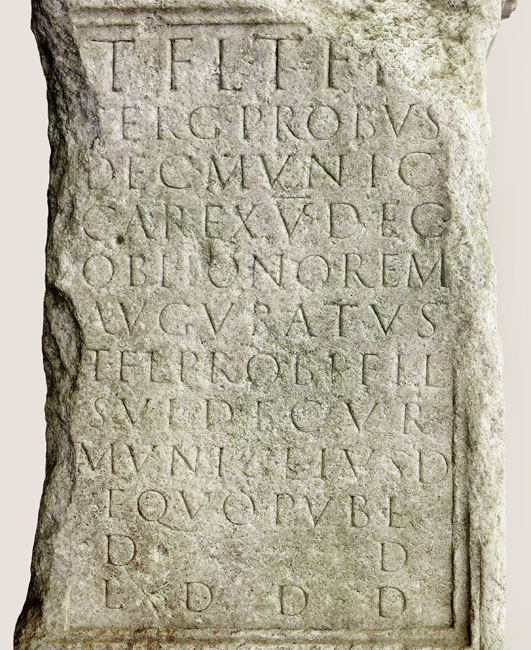 T FL T FI
SERG PROBVS
DEC MVNIC
CAR EX V S DEC
OB HONOREM
AVGVRATVS
T FL PROBI FIL
SVI DECVR
MVNIC EIVSD
EQVO PVBL
D D
L D D D